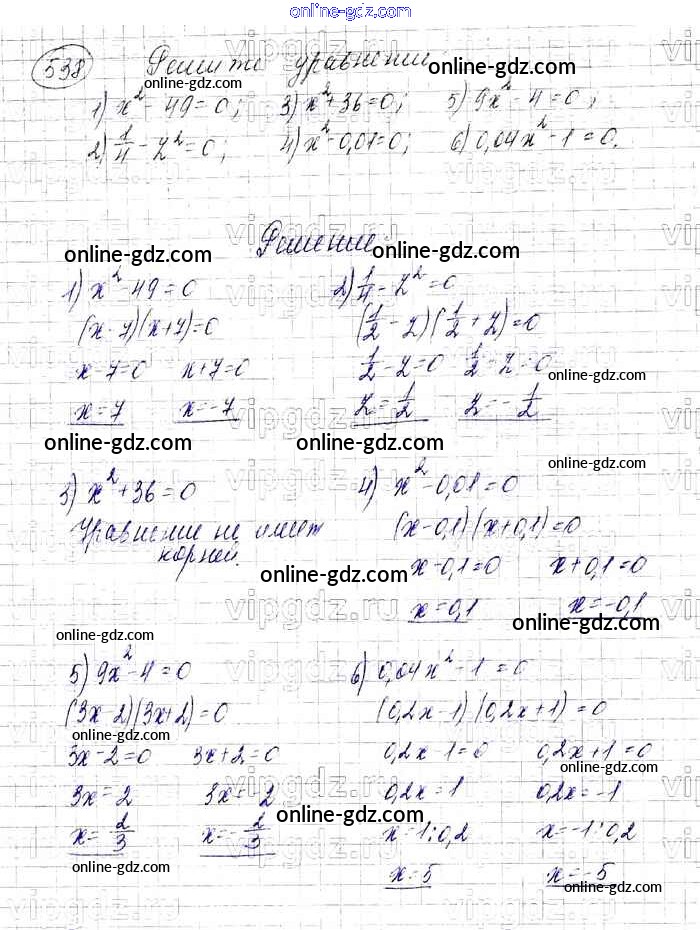 online-gdz.com
538 Решите уравнения:
online-gdz.com
1) x² - 49 = 0; 3) x² + 36 = 0; 5) 9x² - 4 = 0;
online-gdz.com online-gdz.com
2) 1/4 - z² = 0; 4) x² - 0,01 = 0; 6) 0,04x² - 1 = 0.
vipgdz.ru vipgdz.ru
Решение:
online-gdz.com online-gdz.com
1) x² - 49 = 0 2) 1/4 - z² = 0
vipgdz.ru vipgdz.ru
(x - 7)(x + 7) = 0 (1/2 - z)(1/2 + z) = 0
x - 7 = 0 x + 7 = 0 1/2 - z = 0 1/2 - z = 0
online-gdz.com
x = 7 x = -7 z = 1/2 z = -1/2
vipgdz.ru vipgdz.ru
online-gdz.com online-gdz.com
online-gdz.com
3) x² + 36 = 0 4) x² - 0,01 = 0
Уравнение не имеет (x - 0,1)(x + 0,1) = 0
корней. x - 0,1 = 0 x + 0,1 = 0
online-gdz.com
x = 0,1 x = -0,1
vipgdz.ru vipgdz.ru
online-gdz.com
online-gdz.com
5) 9x² - 4 = 0 6) 0,04x² - 1 = 0
vipgdz.ru vipgdz.ru
(3x - 2)(3x + 2) = 0 (0,2x - 1)(0,2x + 1) = 0
online-gdz.com
3x - 2 = 0 3x + 2 = 0 0,2x - 1 = 0 0,2x + 1 = 0
online-gdz.com
vipgdz.ru vipgdz.ru
3x = 2 3x = 2 0,2x = 1 0,2x = -1
online-gdz.com
x = 2/3 x = -2/3 x = 1 : 0,2 x = -1 : 0,2
online-gdz.com
x = 5 x = -5
online-gdz.com
vipgdz.ru vipgdz.ru